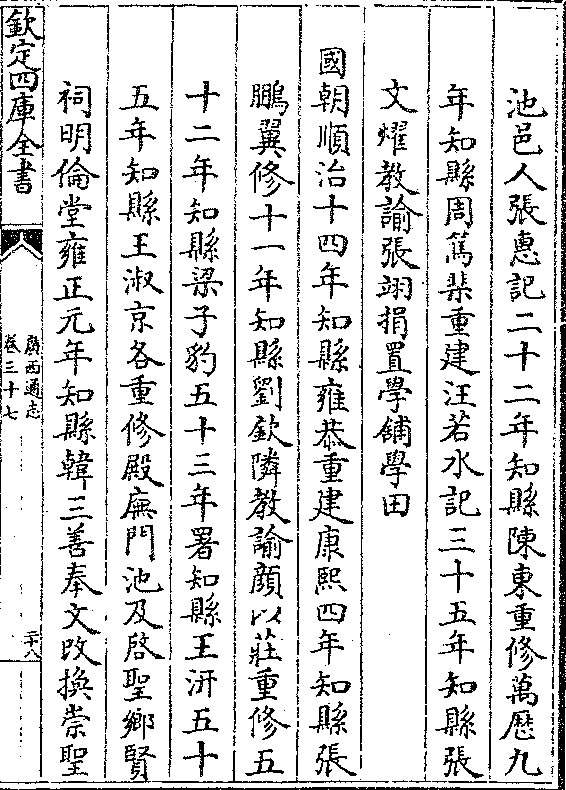 池邑人張惠記二十二年知縣陳東重修萬歴九
年知縣周篤棐重建汪若水記三十五年知縣張
文燿教諭張翊捐置學舖學田
國朝順治十四年知縣雍恭重建康熙四年知縣張
鵬翼修十一年知縣劉欽隣教諭顔以莊重修五
十二年知縣梁子豹五十三年署知縣王汧五十
五年知縣王淑京各重修殿廡門池及啓聖鄉賢
祠明倫堂雍正元年知縣韓三善奉文改換崇聖
欽定四庫全書
廣西通志
卷三十七
三十八